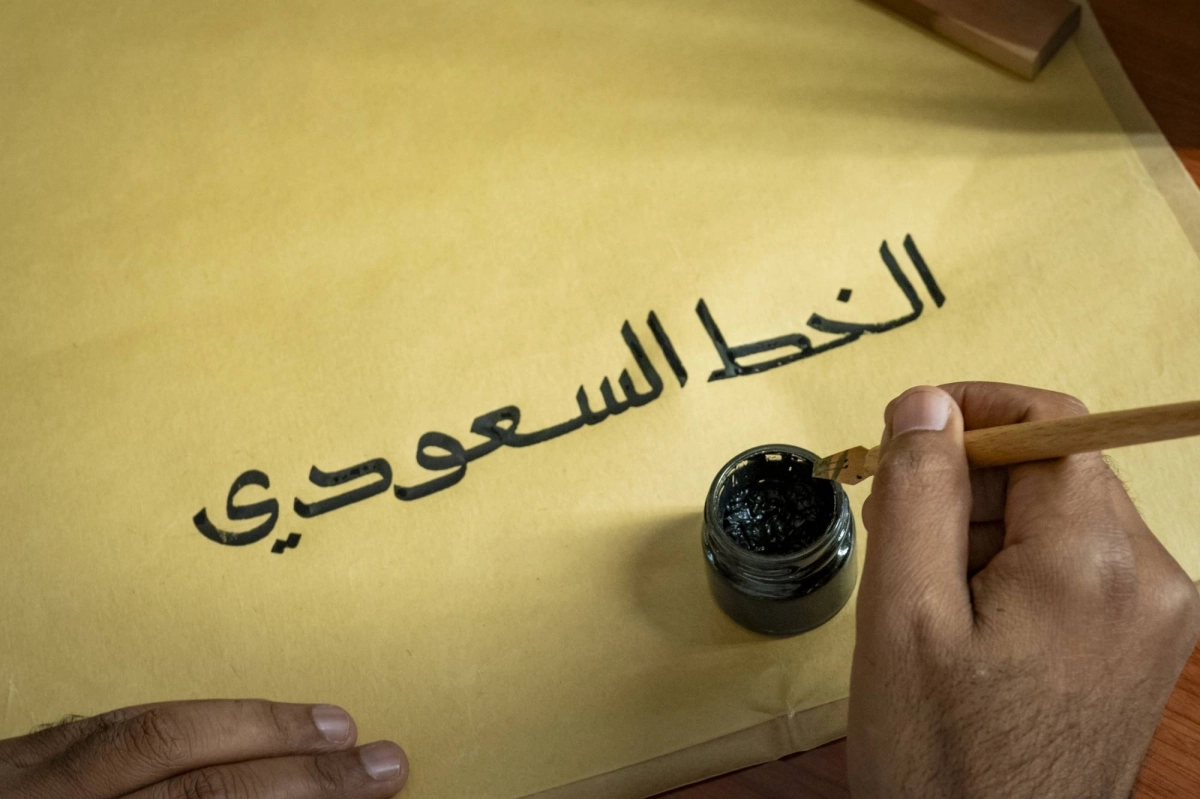 الخط السعودي